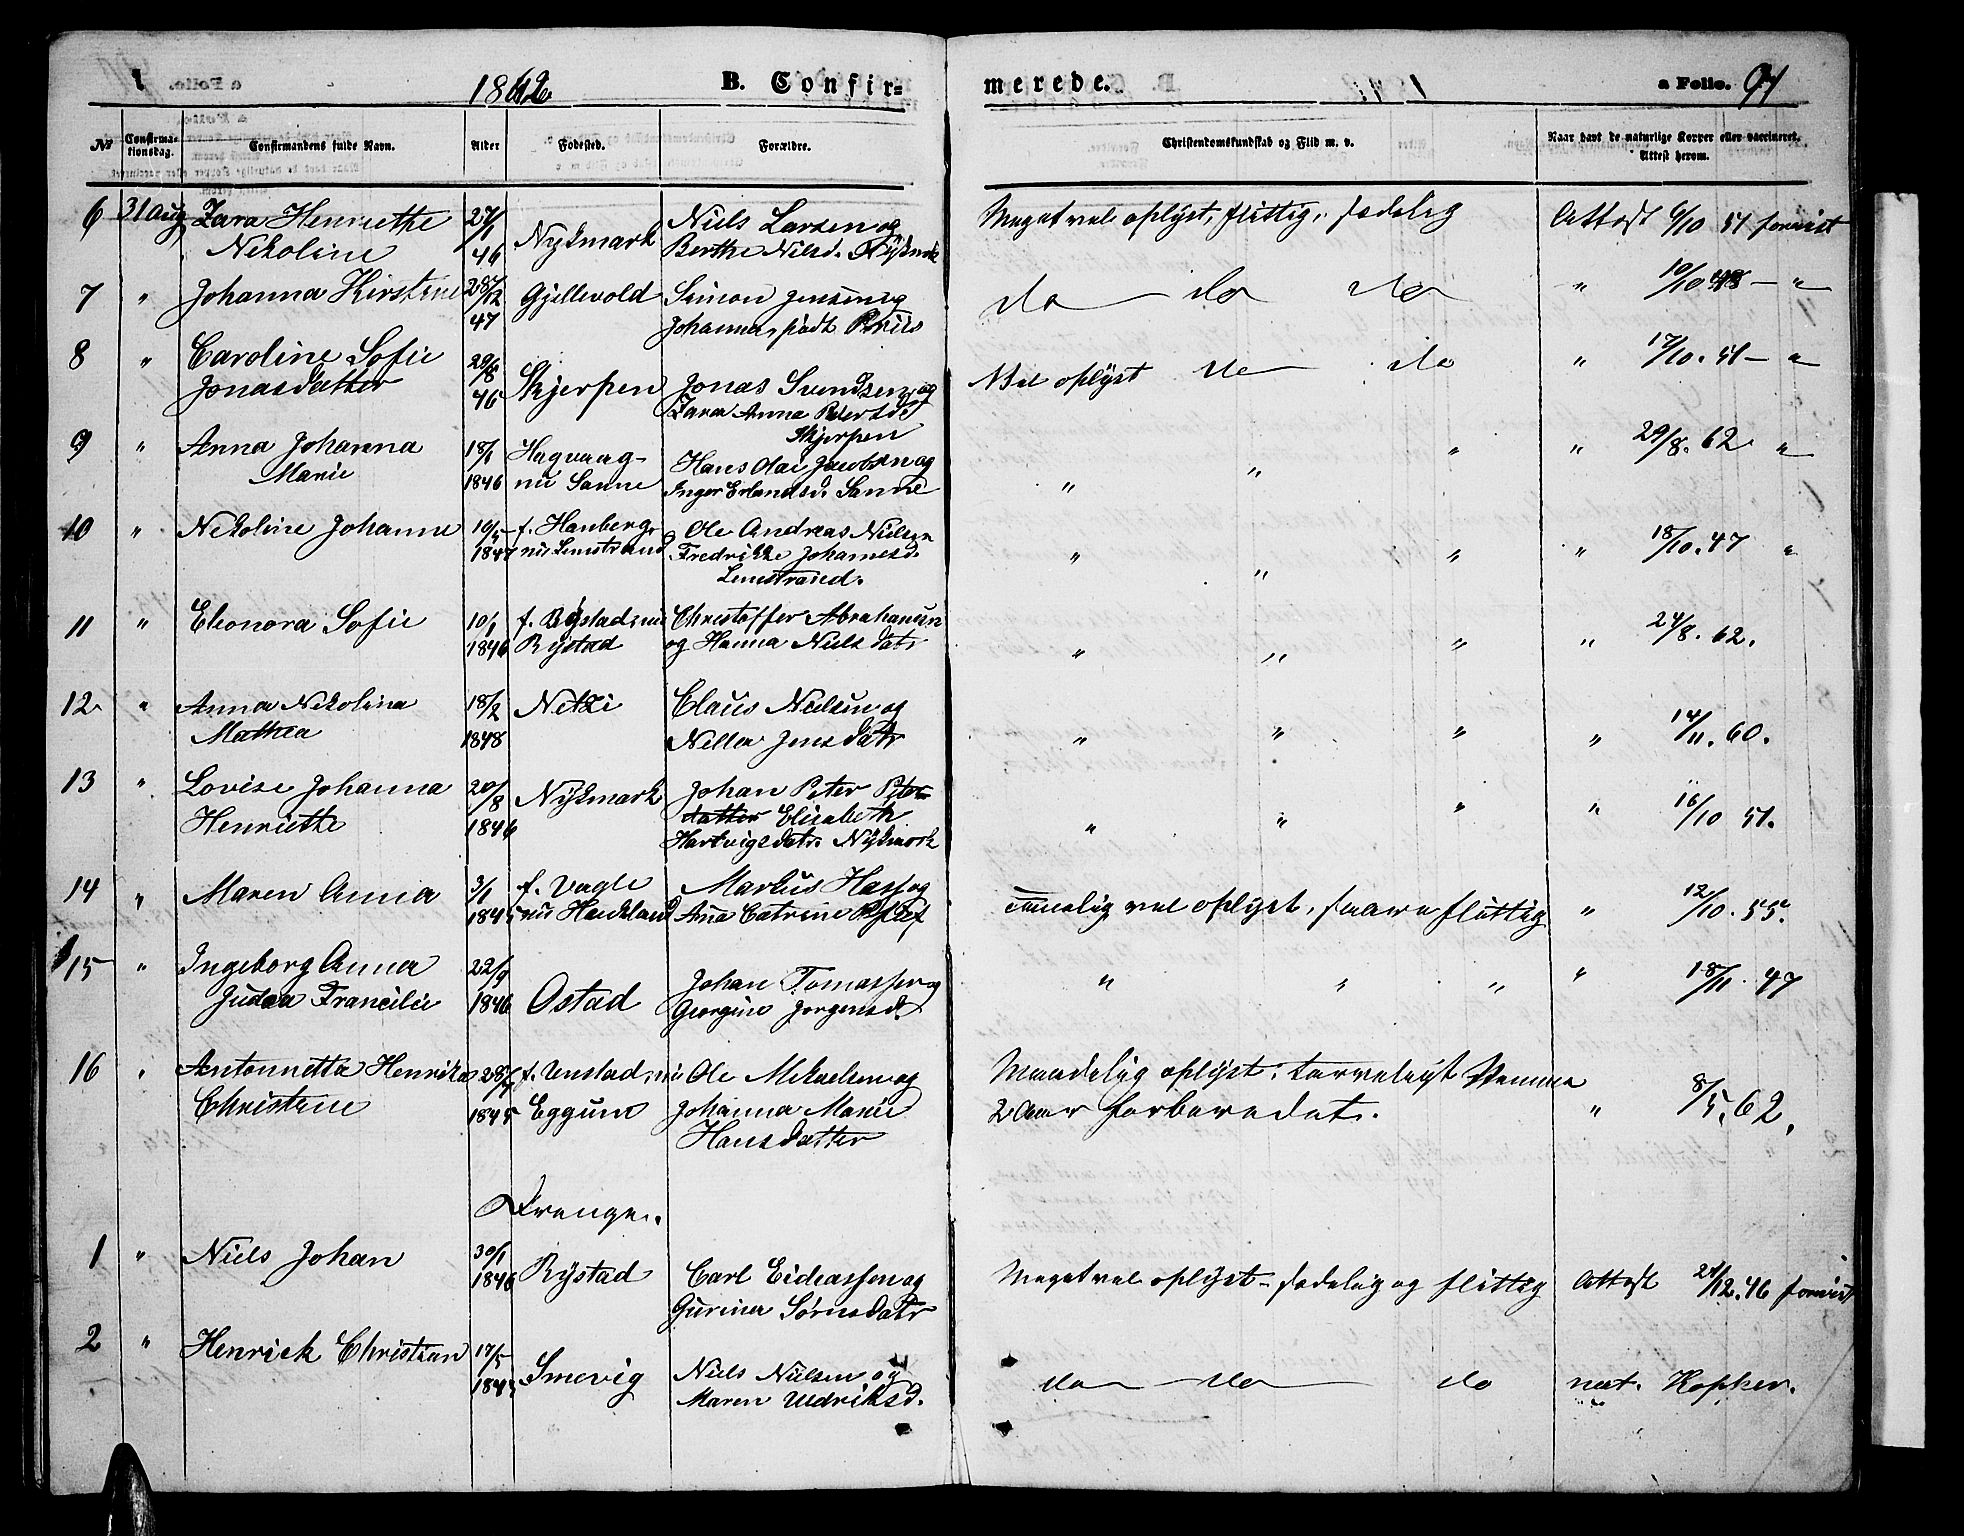 1862. B. Confir-
merede. a Folio. 91
№ Confirmationsdag. Confirmandens fulde Navn. Alder Fødested. Forældre. Christendomskundskab og Flid m. v. Naar havt de naturlige Kopper eller vaccineret. Attest herom.
6 31 Aug Zara Henriethe 27/1 Niels Larsen og Meget vel oplyst, flittig, sædelig Attest 6/10 51 forevist
Nekoline 46 Nykmark Berthe Nilsd.
7 " Johanna Kirstine 28/12 Gjellevold Simon Jensen og do do do " 10/10 48 — "
47 Johanna, født Kriis
8 " Caroline Sofie 29/8 " 17/10. 51 — "
Jonasdatter 46 Skjerpen Jonas Svendsen og Vel oplyst do do
Zara Anna Petersd.
Skjerpen
9 " Anna Johanna 18/1 Hagvaag- Hans Olai Jacobsen og " " " " 29/8. 62 "
Marie 1846 nu Sanne Inger Erlandsd. Sanne
10 " Nekoline Johanne 10/5 f. Hanberg, Ole Andreas Nielsen " " " " 18/10. 47 "
1847 nu Limstrand Fredrikke Johannesd.
Limstrand.
11 " Eleonora Sofie 10/1 f. Bøstad, nu Christoffer Abrahamsen " " " " 24/8. 62.
1846 Rystad og Hanna Niels datr
12 " Anna Nikolina 18/2 Netzi Claus Nielsen og " " " " 14/11. 60.
Mathea 1848 Nella Jens datr
13 " Lovise Johanna 20/8 Nykmark Johan Peter Peter- " " " " 16/10 51.
Henriethe 1846 datter Elisabeth
Hartvigsdatr. Nykmark
14 " Maren Anna 3/1 f. Vagle Markus Hass og Temmelig vel oplyst, saare flittig " 12/10. 55.
1845 nu Haukland Ana Catrine
15 " Ingeborg Anna 22/9 Johan Tomassen og " " " " 18/11. 47
Judea Francilie 1846 Ostad Georgine Jørgensd.
16 " Antonnetta Henrika 28/7 f. Unstad, nu Ole Mikaelsen og Maadelig oplyst; tarveligt Nemme
Christine 1845 Eggum Johanna Marie 2 Aar forberedet. " 8/5. 62.
Hansdatter
Drenge.
1 " Niels Johan 30/1 Rystad Carl Eideassen og Meget vel oplyst - sædelig og flittig Attest 21/12. 46 forevist
1846 Gurina Sørnsdatr
2 " Henrick Christian 17/5 Smevig Niels Nielsen og do do do nat. Kopper.
Maren Uldriksd.